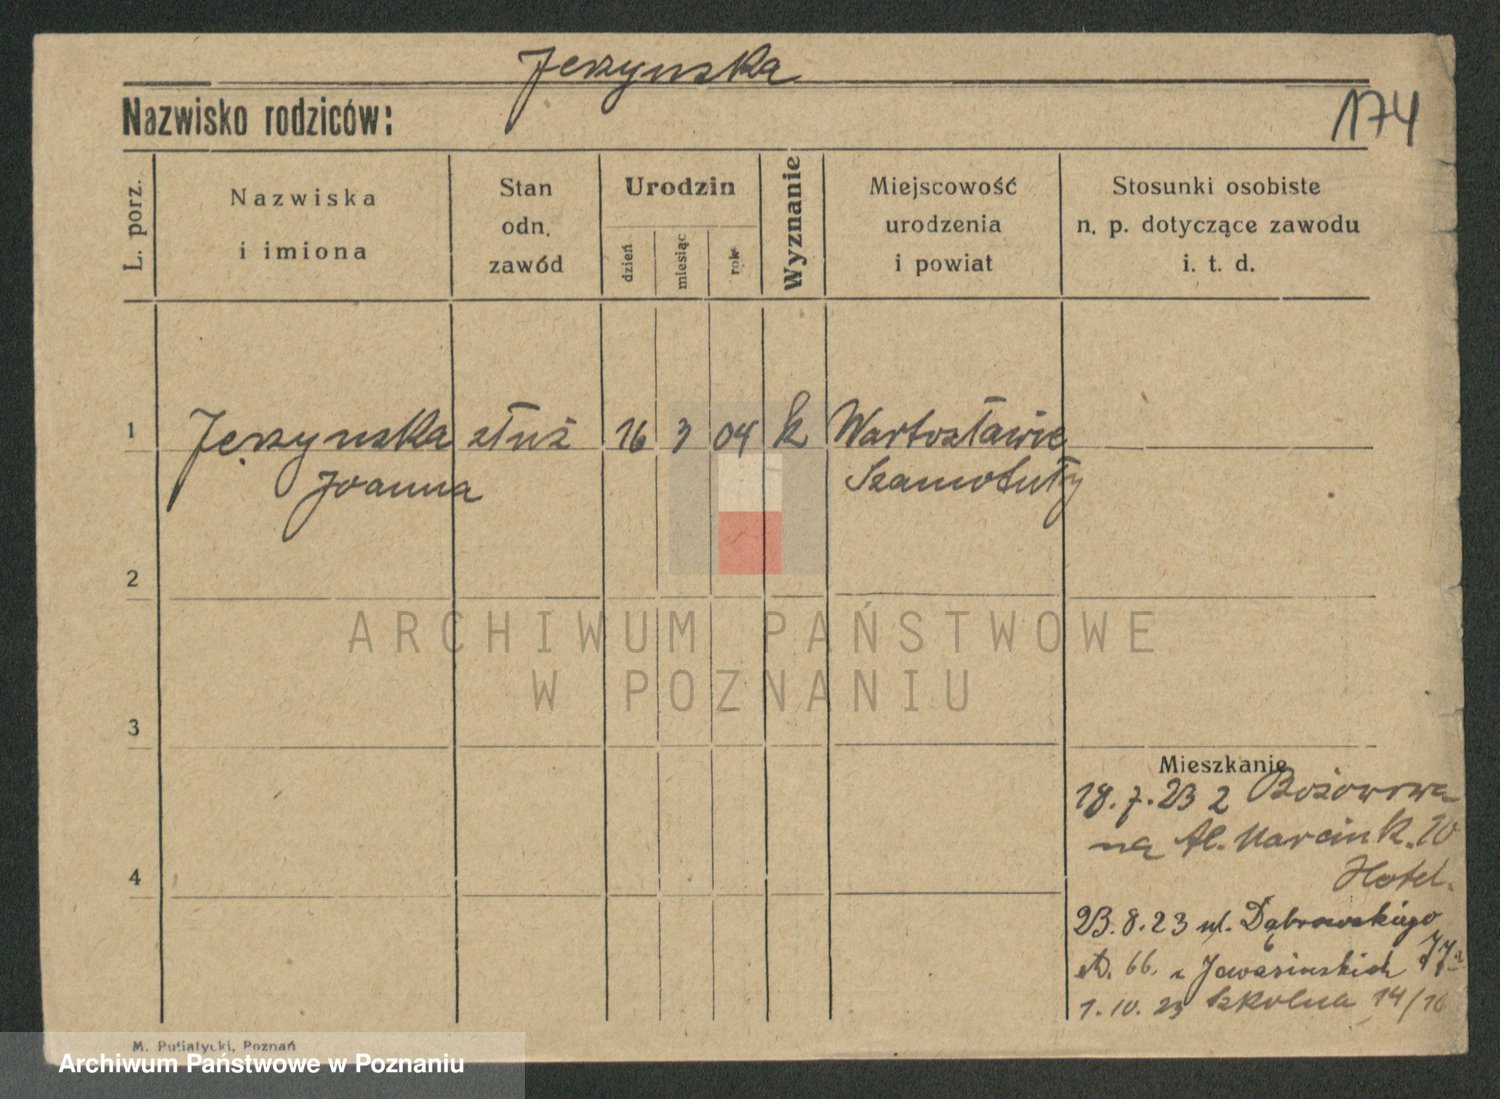 Jerzynska
Nazwisko rodziców:
174
L. porz.
Nazwiska
i imiona
Stan
odn.
zawód
Urodzin
dzień
miesiąc
rok
Wyznanie
Miejscowość
urodzenia
i powiat
Stosunki osobiste
n. p. dotyczące zawodu
i. t. d.
1
Jerzynska służ 16 3 04 k Wartosławie
Joanna Szamotuły
2
ARCHIWUM PAŃSTWOWE
W POZNANIU
3
Mieszkanie
18.7.23 z
na Al. Marcink. 10
Hotel.
4
23.8.23 ul. Dąbrowskiego
66.
1.10.23 Szkolna 14/16
M. Putiatycki, Poznań
Archiwum Państwowe w Poznaniu